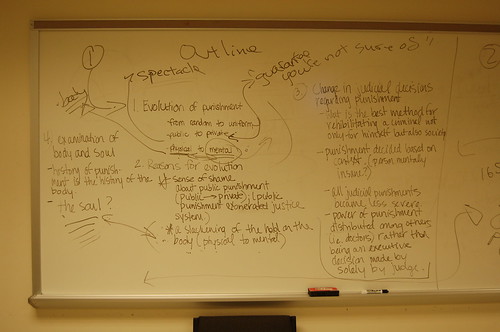 ①
Outline
spectacle
"guarantee
you're not sure of"
body
1. Evolution of punishment
from random to uniform
public to private
physical to mental
2. Reasons for evolution
sense of shame
about public punishment
(public → private); (public
punishment exonerated justice
system)
slackening of the hold on the
body (physical to mental)
③ Change in judicial decisions
regarding punishment
what is the best method for
rehibilitating a criminal not
only for himself but also society
- punishment decided based on
context. (person mentally
insane?)
- all judicial punishments
became less severe.
- power of punishment
distributed among others
(ie. doctors) rather than
being an executive
decision made by
solely by judge.
4. examination of
body and soul
- history of punish-
ment is the history of the
body.
- the soul?
②
165